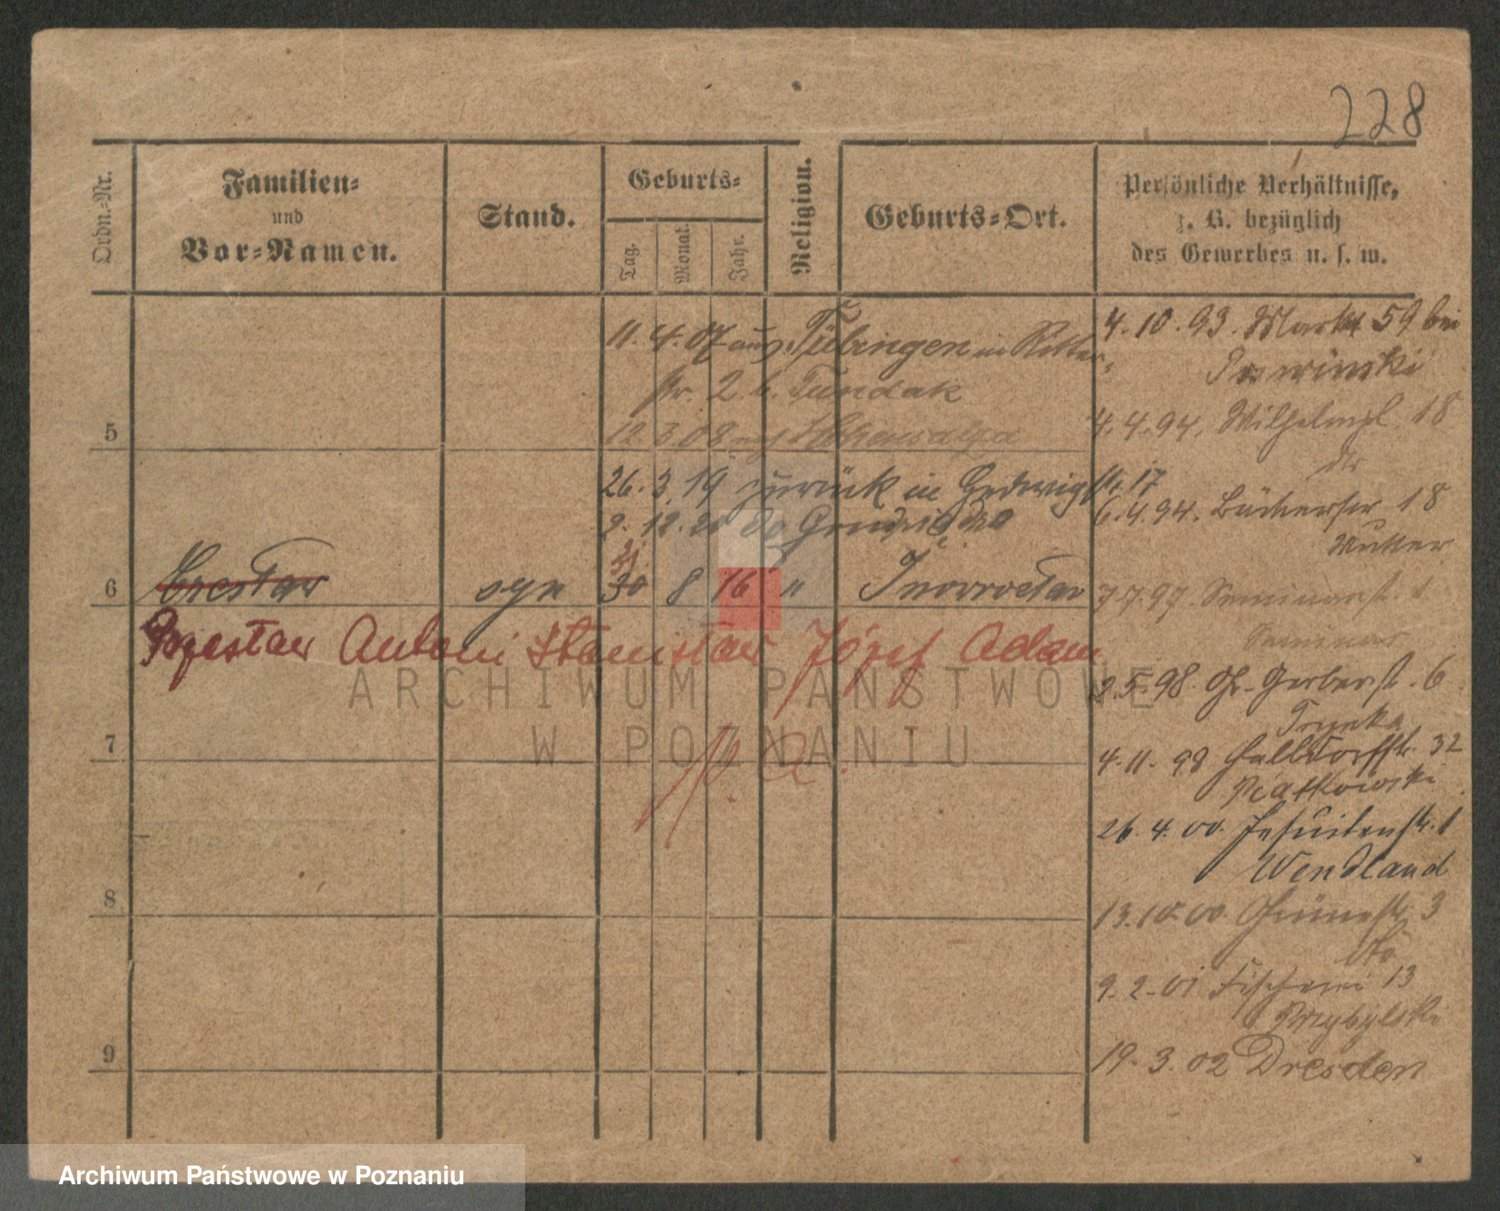 228
Ordn.-Nr.
Familien-
und
Vor-Namen.
Stand.
Geburts-
Tag.
Monat.
Jahr.
Religion.
Geburts-Ort.
Persönliche Verhältnisse,
z. B. bezüglich
des Gewerbes u. s. w.
11. 4. 07 aus Tübingen in Ritter
str. 2 b. Tundak
5
12. 3. 08 nach Hohensalza
26. 3. 19 zurück in Hedwigstr. 17
9. 12. 20
31
6
syn
30
8
16
"
Inowrocław
Antoni Stanisław Józef Adam
p. a.
7
8
9
4. 10. 93. Markt 59 bei
4. 4. 94. 18
6. 4. 94. 18
Mutter
7. 7. 97. Seminarst.
Seminar
98. Gr. Gerberst. 6
4. 11. 99 32
Piątkowski
26. 4. 00. Jesuitenstr. 1
Wendland
13. 10. 00. Grünestr. 3
dto
9. 2. 01 Fischerei 13
Przybylski
19. 3. 02 Dresden
ARCHIWUM PAŃSTWOWE
W POZNANIU
Archiwum Państwowe w Poznaniu